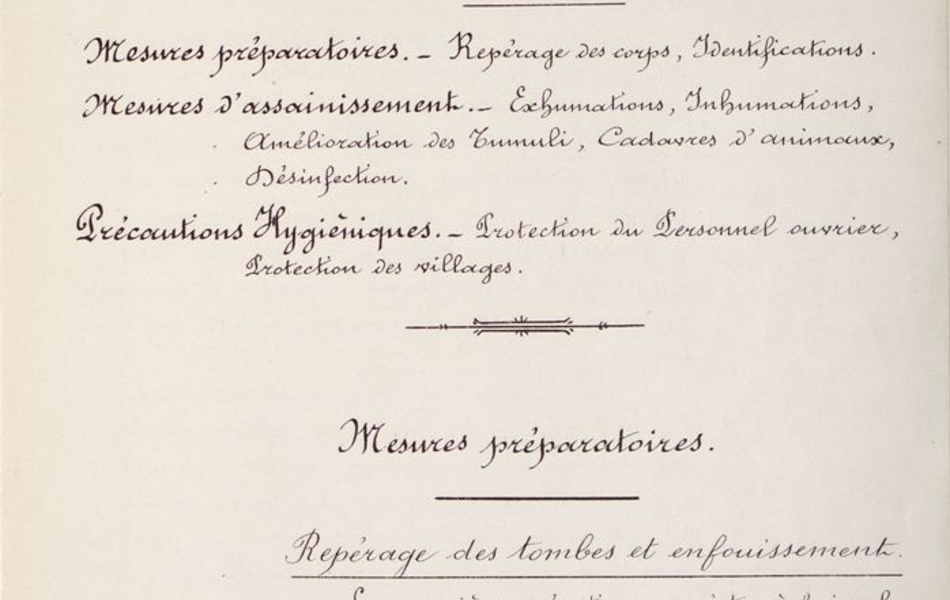 Mesures préparatoires. – Repérage des corps, Identifications.
Mesures d'assainissement. – Exhumations, Inhumations,
Amélioration des Tumuli, Cadavres d'animaux,
Désinfection.
Précautions Hygièniques. – Protection du Personnel ouvrier,
Protection des villages.
Mesures préparatoires.
Repérage des tombes et enfouissement.